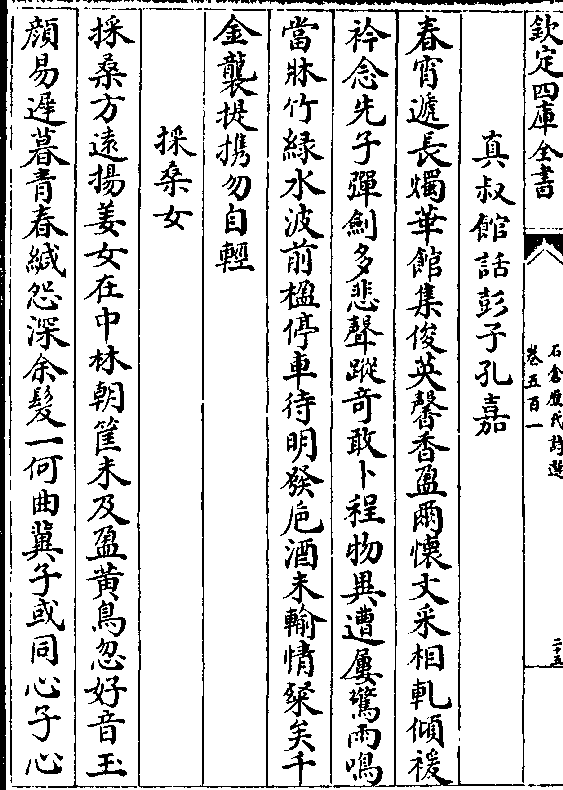 欽定四庫全書
石倉歷代詩選
卷五百一
二十五
真叔館話彭子孔嘉
春宵遞長燭華館集俊英馨香盈爾懷文采相軋傾褑
衿念先子彈劍多悲聲蹤奇敢卜程物異遭屢驚雨鳴
當牀竹緑水波前楹停車待明發巵酒未輸情粲矣千
金襲提攜勿自輕
採桑女
採桑方遠揚姜女在中林朝筐未及盈黃鳥忽好音玉
顔易遲暮青春緘怨深余髮一何曲冀子或同心子心